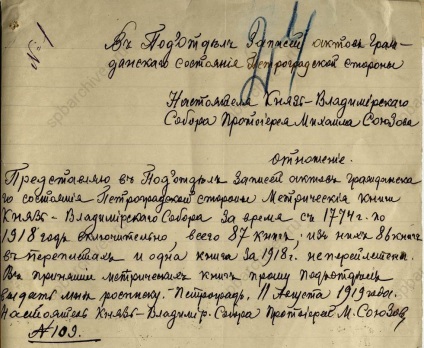 №1
24
Въ Подъотдѣлъ Записей актовъ Граж-
данскаго состоянiя Петроградской стороны
Настоятеля Князь-Владимiрскаго
Собора Протоiерея Михаила Союзова
отношенiе.
Представляю въ Подъотдѣлъ Записей актовъ гражданска
го состоянiя Петроградской стороны Метрическiя книги
Князь-Владимiрскаго Собора за время съ 1774 г. по
1918 годъ включительно, всего 87 книгъ, изъ нихъ 86 книгъ
въ переплетахъ и одна книга за 1918 г. непереплетена.
Въ принятiи метрическихъ книгъ прошу Подъотдѣлъ
выдать мнѣ росписку. - Петроградъ, 11 Августа 1919 года.
Настоятель Князь-Владимiр. Собора Протоiерей М. Союзовъ
№ 109.